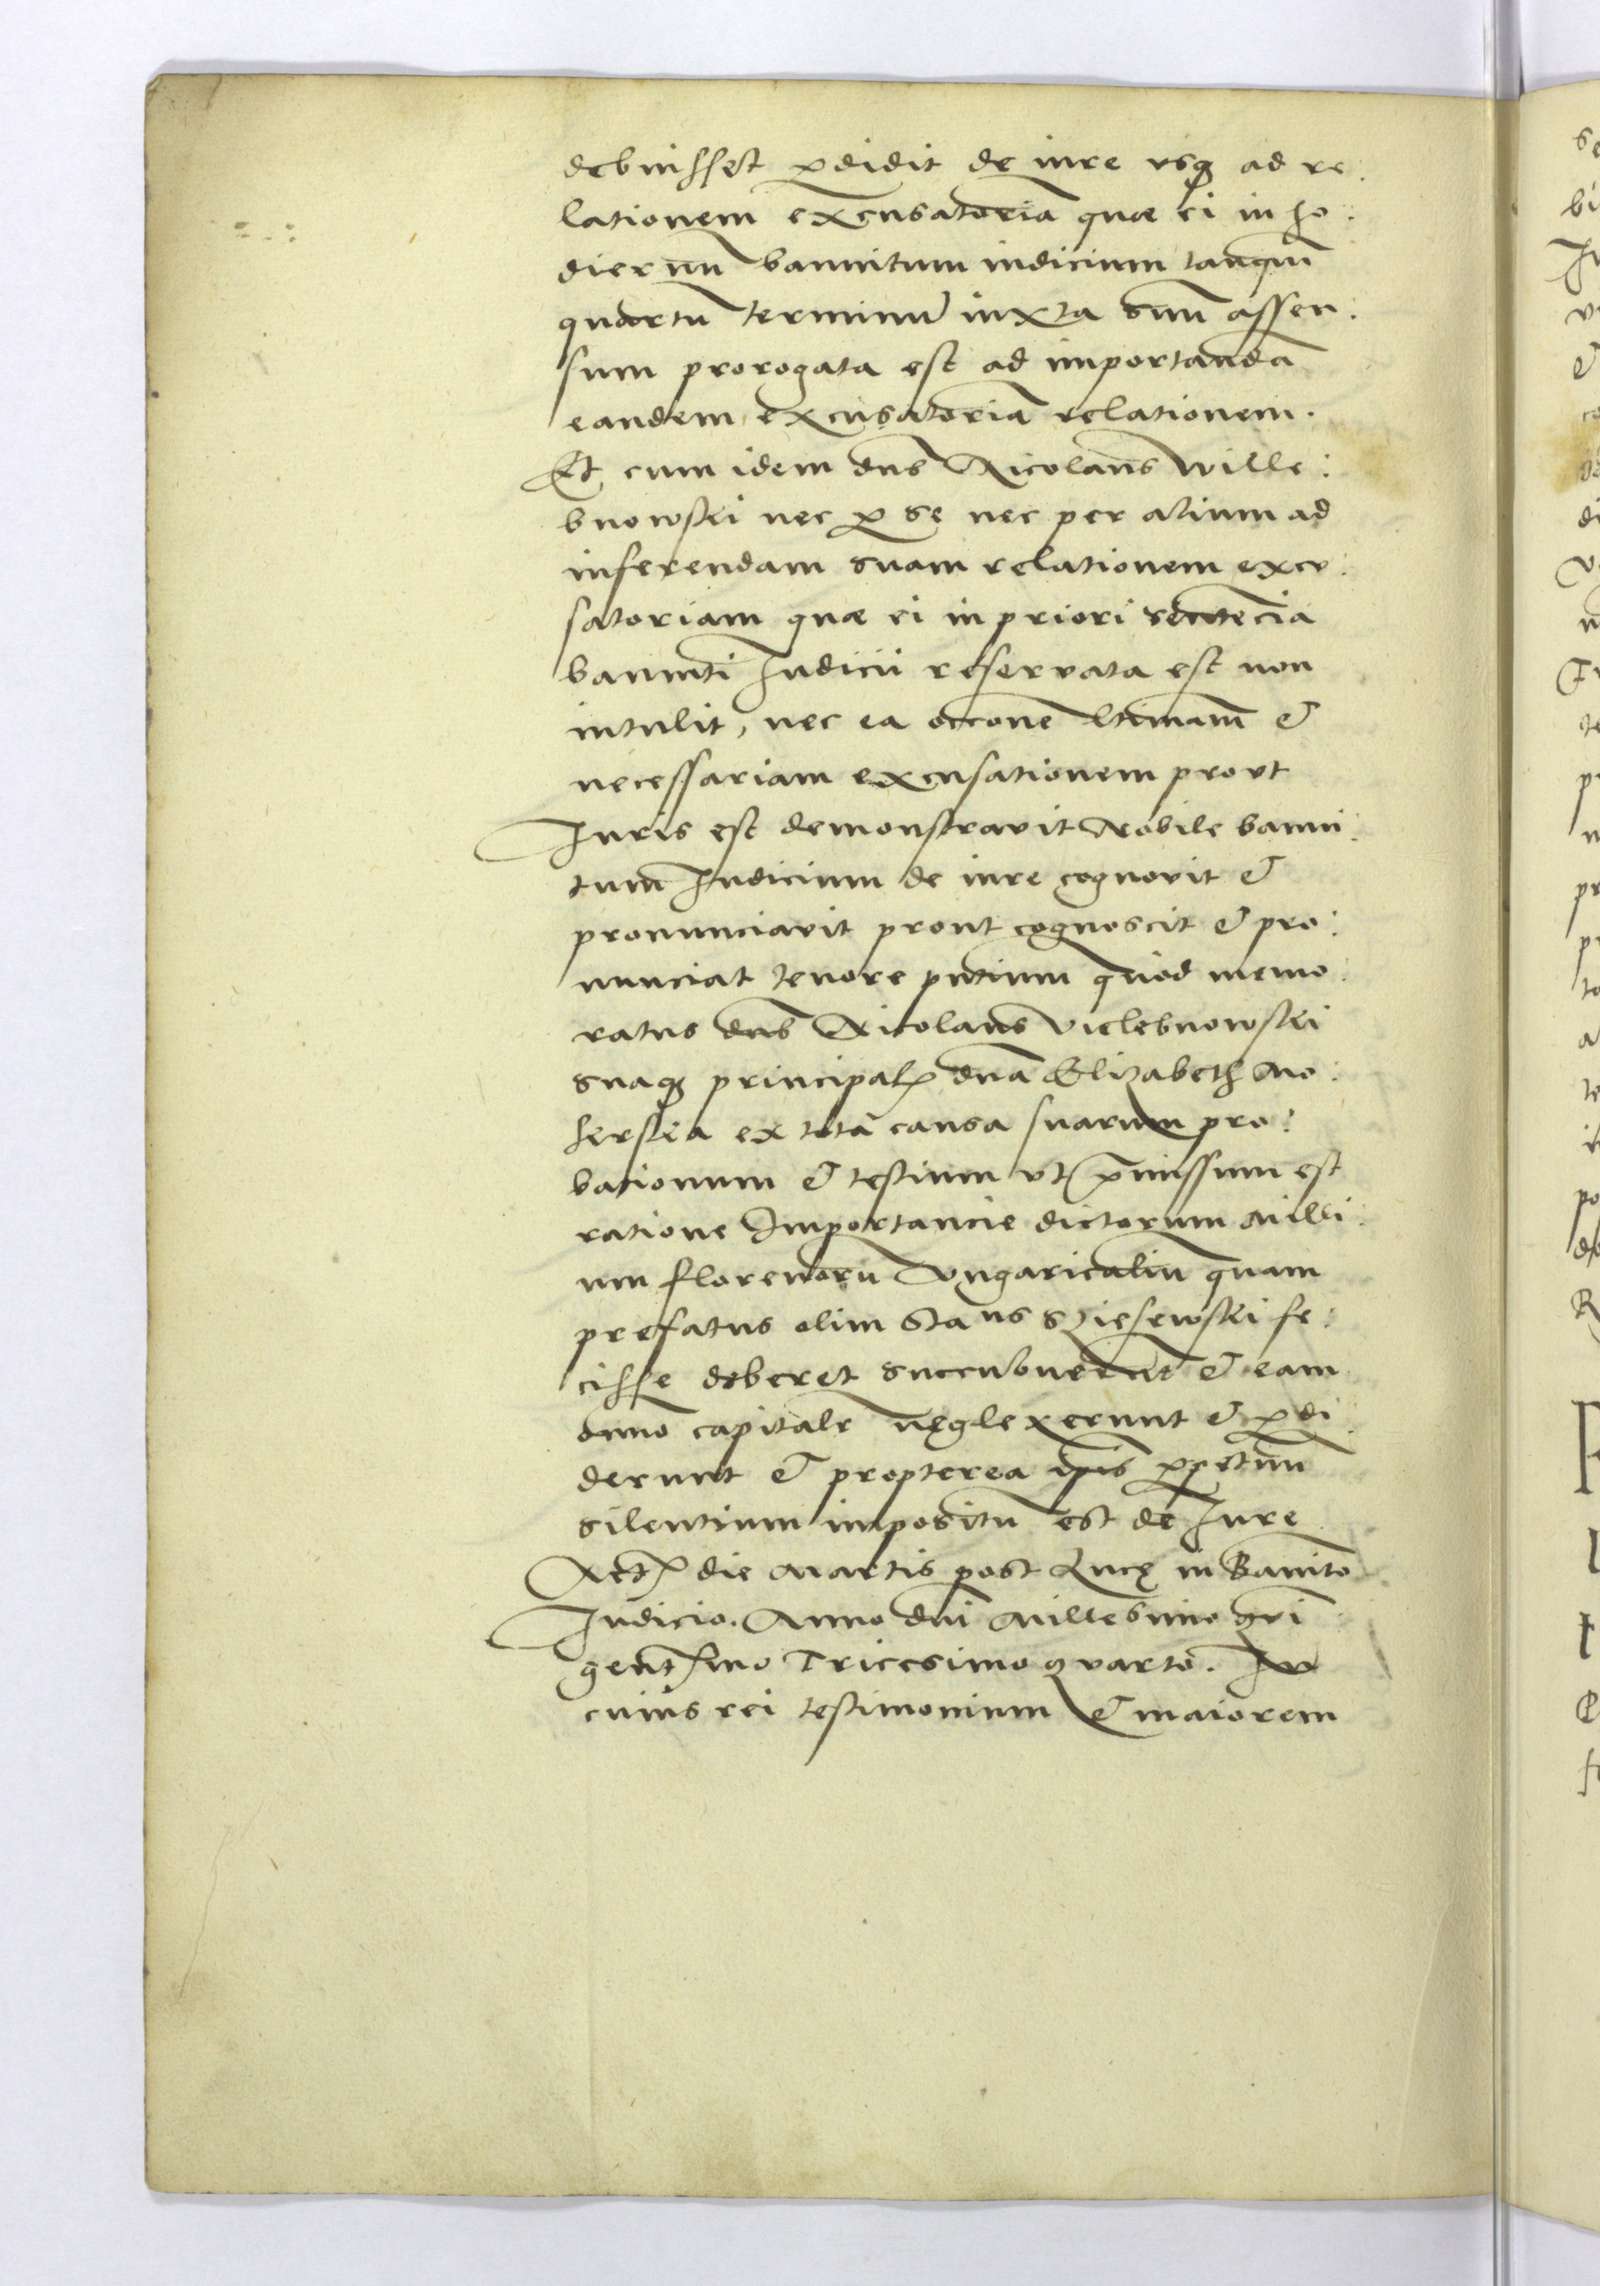 debuisset ꝑdidit de iure vsq3 ad re:
lationem excusatoriã quæ ei in ho:
diernũ bannitum iudicium tanqm̃
quartũ terminũ iuxta suũ assen:
sum prorogata est ad importandã
eandem excusatoriã relationem.
Et cum idem dns̃ Nicolaus Wille:
bnowski nec ꝑ se nec per alium ad
inferendam suam relationem excu:
satoriam quæ ei in priori sentẽcia
bannitĩ Iudicii reservata est non
intulit, nec ea occone ltimam̃ &
necessariam excusationem prout
Iuris est demonstravit Nobile banni:
tum Iudicium de iure cognovit &
pronunciavit prout cognoscit & pro:
nunciat tenore pñtium quod memo:
ratus dns̃ Nicolaus Vielebnowski
suaq3 principal dnã Elizabeth Mo:
herska ex tota causa suarum pro:
bationum & testium vt p̃missum est
ratione Importancie dictorum Milli:
um florenorũ Vngaricaliũ quam
prefatus olim Staus fe:
cisse deberet succubuerũt & eam
dmno capitale neglexerunt & ꝑdi:
derunt & propterea ipis ꝑpetuũ
silentium impositũ est de Iure
Act die Martis post Lucę in Banito
Iudicio. Anno dni Millesimo qui
gentmo Tricesimo quarto. In
cuius rei testimonium & maiorem